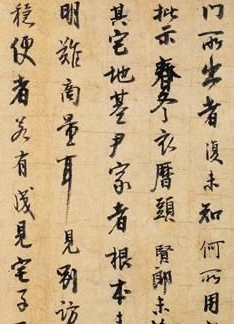 门所出者復未知何所用
批示春冬衣曆頭賢郎未
其宅地基尹家者根本
明難商量耳見別訪
穩便者若有成見宅子